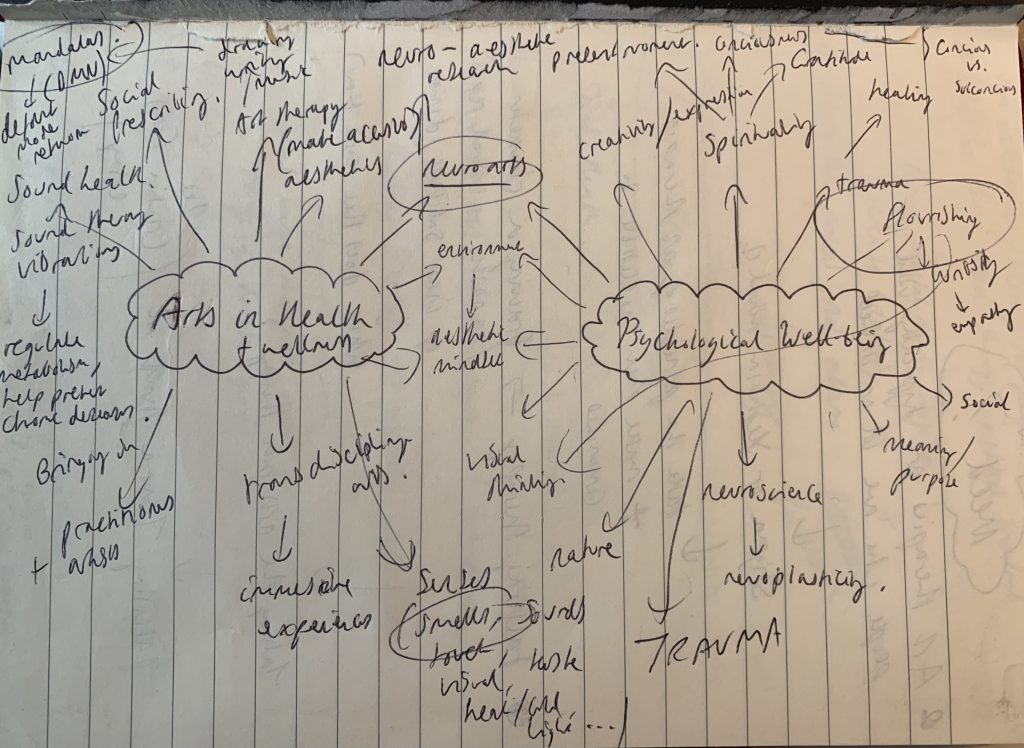 mandalas.
(DMN)
default
mode
network
Social
Prescribing.
drawing
writing
music
Art therapy
(make accessible)
aesthetics
neuro-aesthetic
research
neuroarts
present moment.
creativity/expression
Spirituality
Gratitude
Concious
vs.
subconcious
healing
trauma
flourishing
curiosity
empathy
Sound health.
Sound therapy
vibrations
regulate
metabolism
help prevent
chronic
Arts in Health
+ wellness
environment
aesthetic
mindset
Psychological Well-being
social
meaning/
purpose
Bringing in
practitioners
+ artists
transdisciplinary
arts.
immersive
experiences
Senses
(smells, sounds
touch
visual, taste
heat/cold
light ...)
visual
thinking
nature
TRAUMA
neuroscience
neuroplasticity.